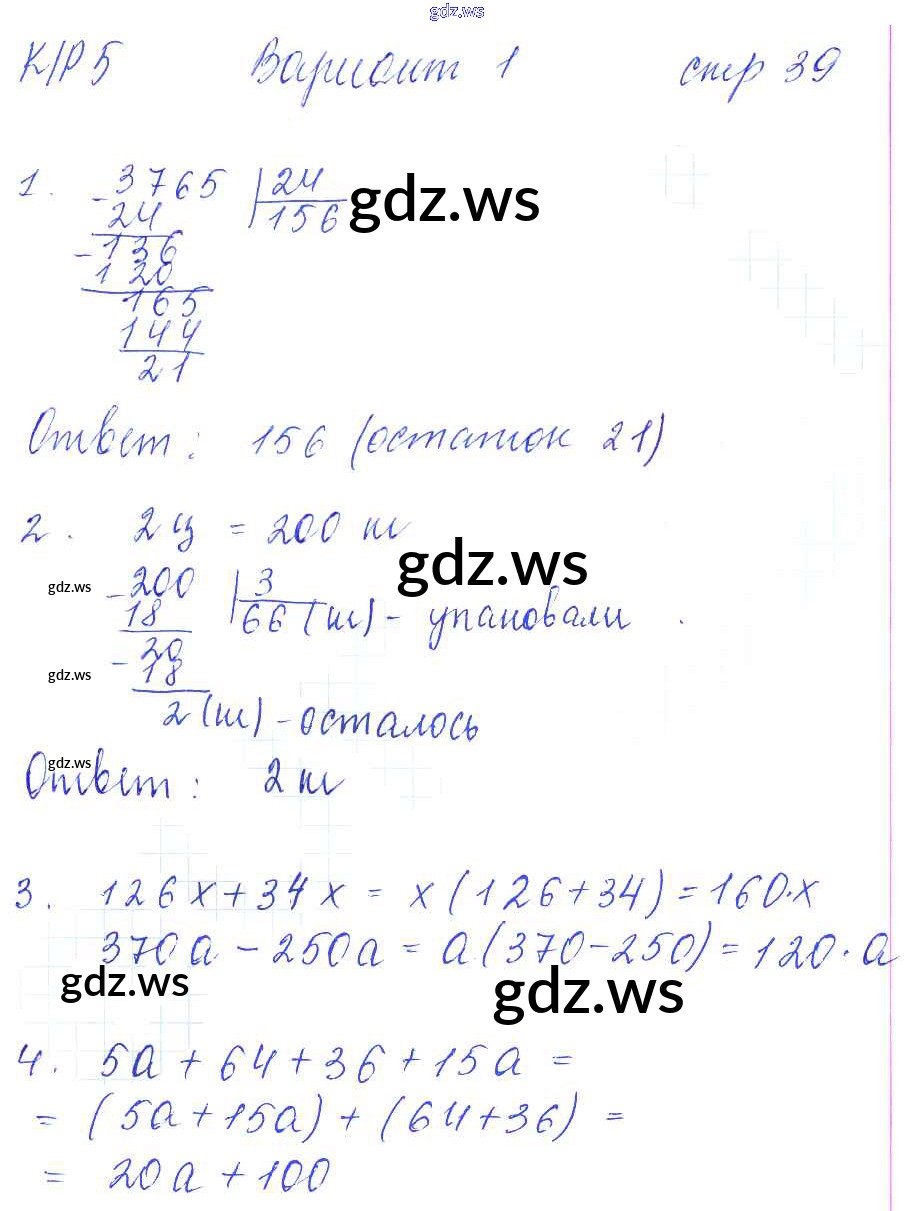 gdz.ws
К/Р 5 Вариант 1 стр 39
1. - 3765 | 24
24 156 gdz.ws
- 136
120
165
144
21
Ответ: 156 (остаток 21)
2. 2 ц = 200 кг
gdz.ws
gdz.ws - 200 | 3
18 66 (кг) - упаковали
- 20
gdz.ws 18
2 (кг) - осталось
gdz.ws
Ответ: 2 кг
3. 126x + 34x = x(126+34) = 160·x
370a - 250a = a(370-250) = 120·a
gdz.ws gdz.ws
4. 5a + 64 + 36 + 15a =
= (5a + 15a) + (64 + 36) =
= 20a + 100